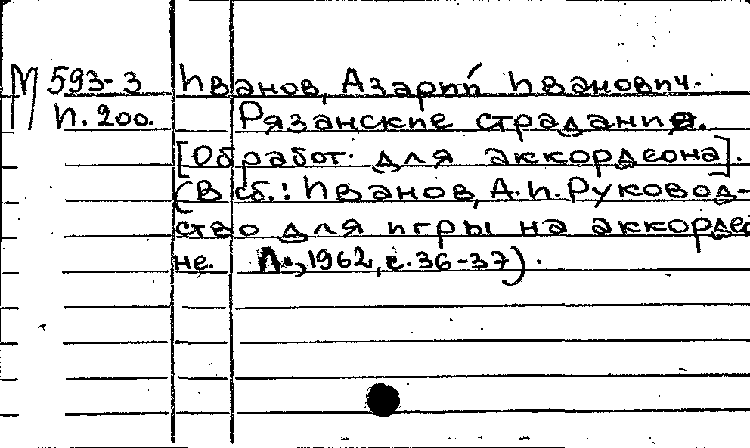 М 593-3 Иванов, Азарий Иванович.
И. 200. Рязанские страдания.
[Обработ. для аккордеона].
(В сб.: Иванов, А.И. Руковод-
ство для игры на аккордео
не. Л., 1962, с. 36-37).